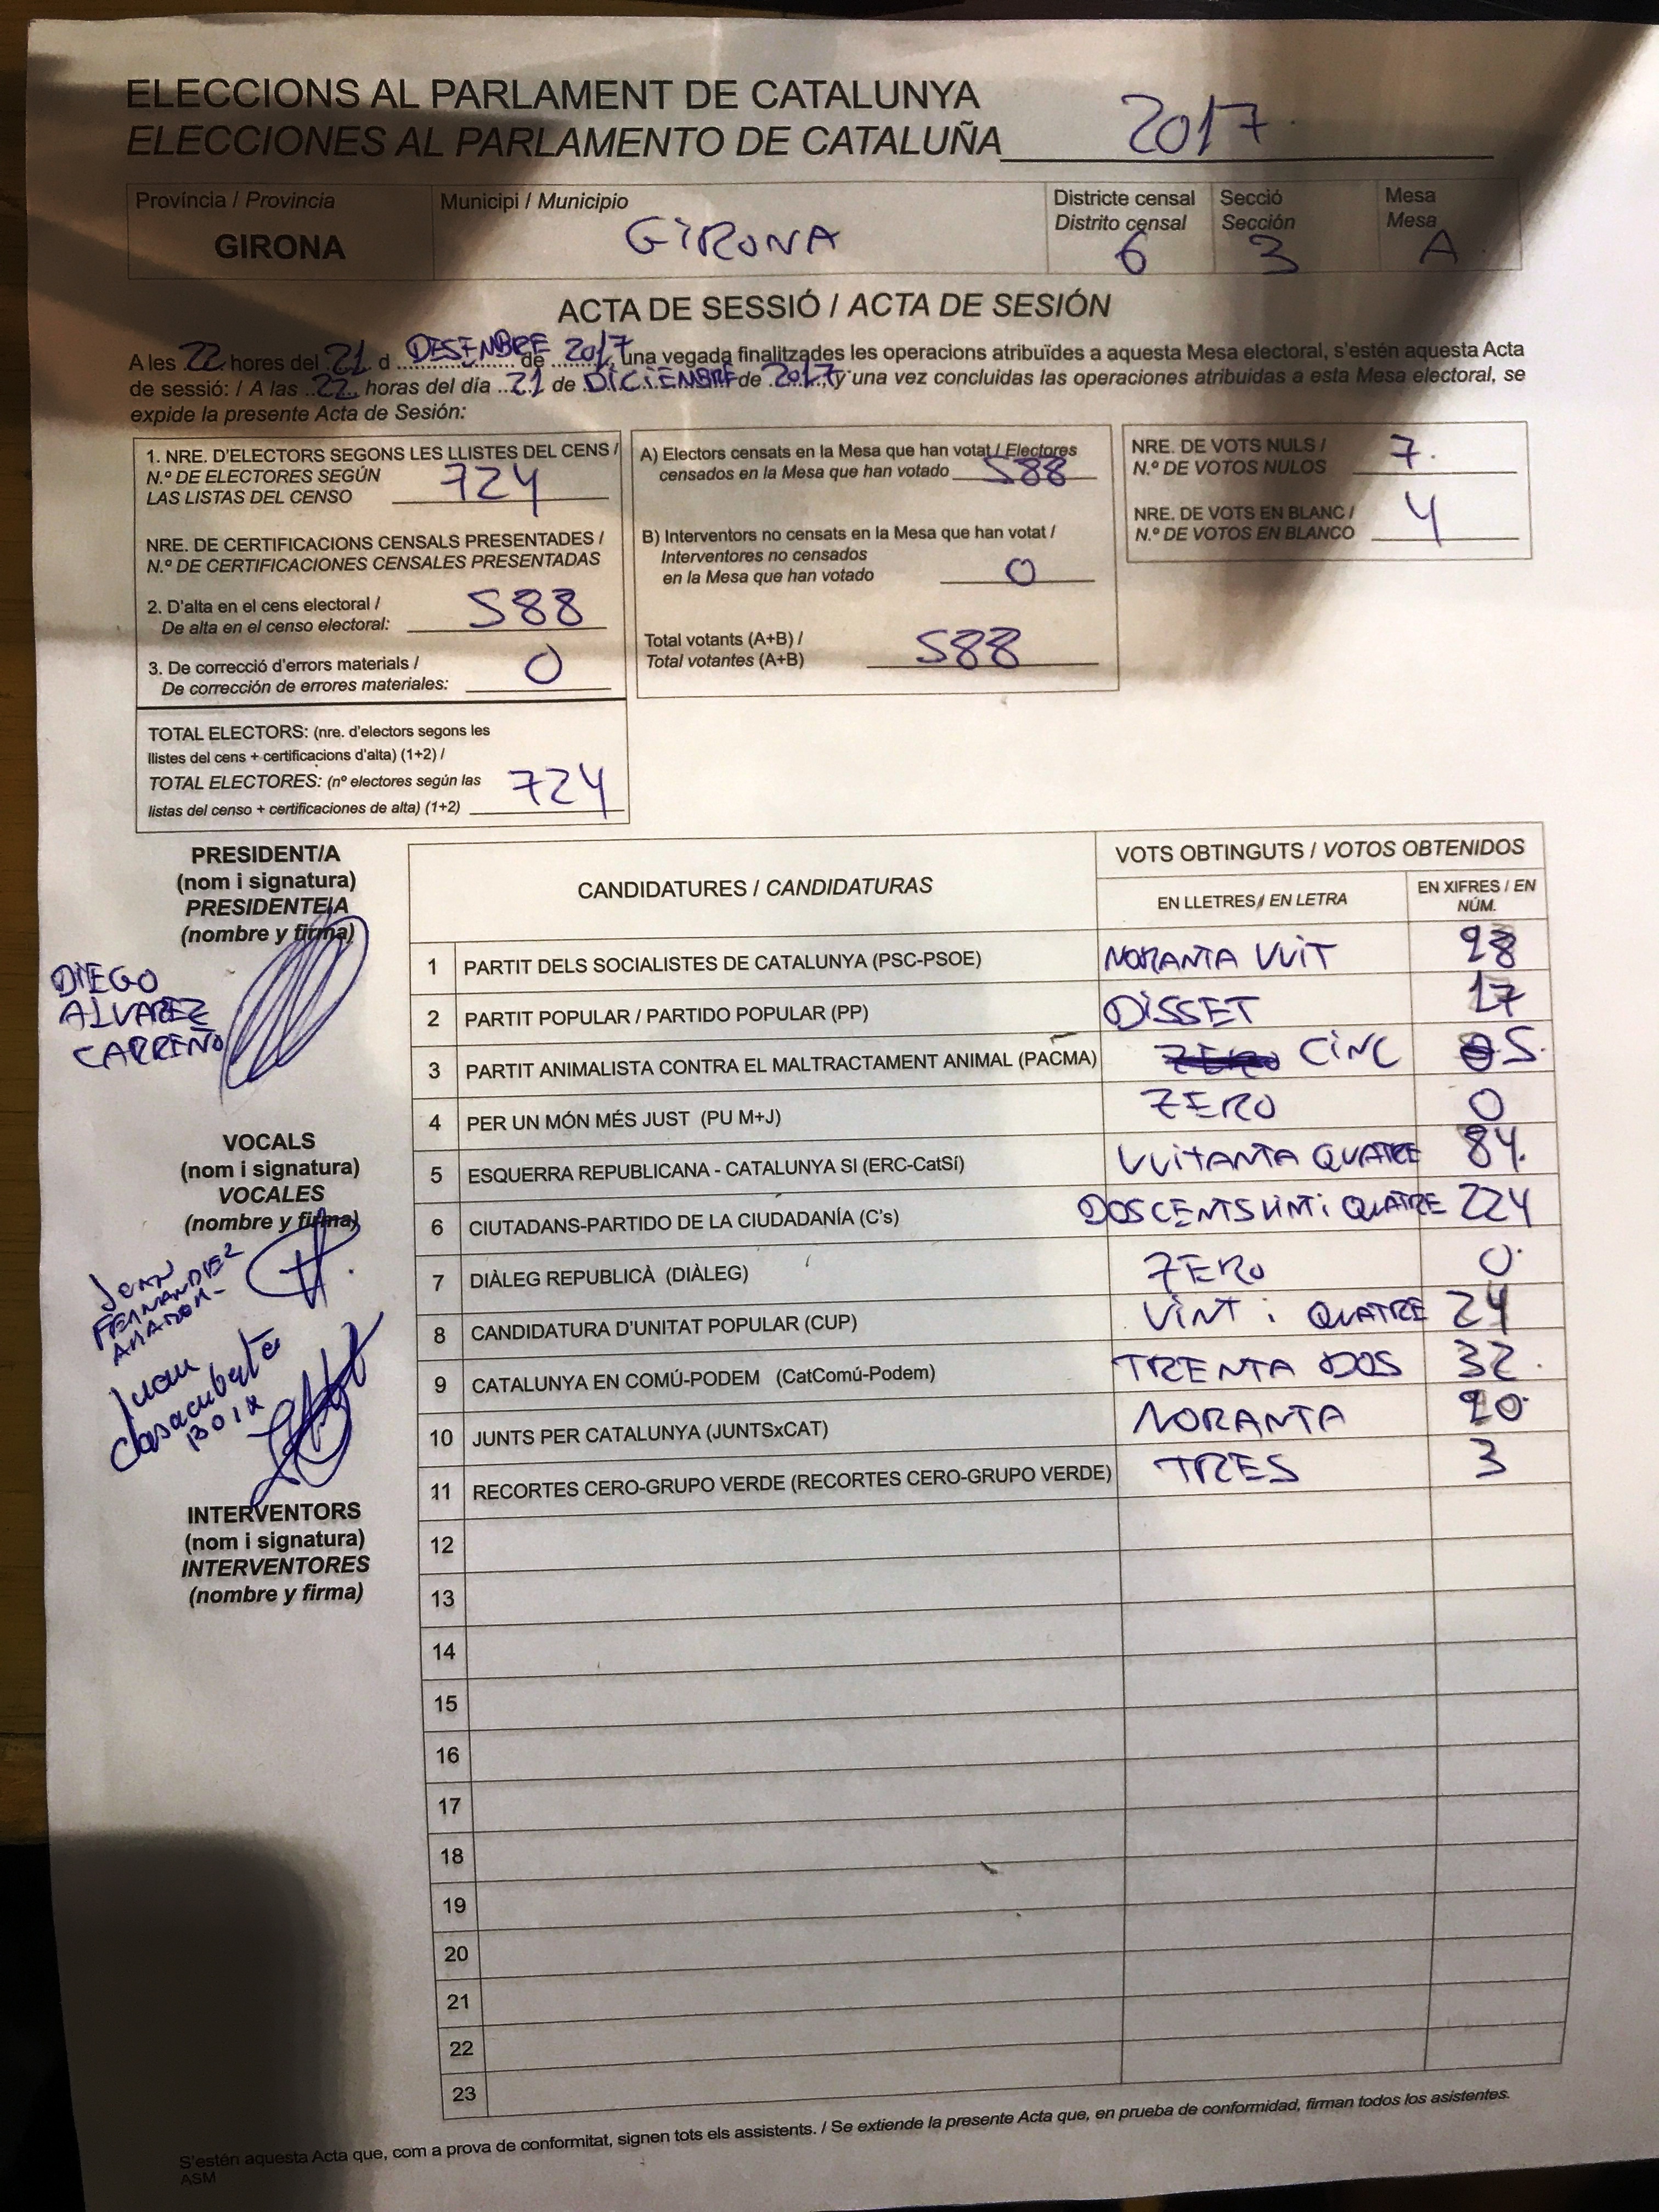 ELECCIONS AL PARLAMENT DE CATALUNYA
ELECCIONES AL PARLAMENTO DE CATALUÑA 2017
Província / Provincia
GIRONA
Municipi / Municipio
GIRONA
Districte censal
Distrito censal
6
Secció
Sección
3
Mesa
Mesa
A
ACTA DE SESSIÓ / ACTA DE SESIÓN
A les 22 hores del 21 d DESEMBRE de 2017, una vegada finalitzades les operacions atribuïdes a aquesta Mesa electoral, s'estén aquesta Acta
de sessió: / A las 22 horas del día 21 de DICIEMBRE de 2017, y una vez concluidas las operaciones atribuidas a esta Mesa electoral, se
expide la presente Acta de Sesión:
1. NRE. D'ELECTORS SEGONS LES LLISTES DEL CENS /
N.º DE ELECTORES SEGÚN
LAS LISTAS DEL CENSO 724
NRE. DE CERTIFICACIONS CENSALS PRESENTADES /
N.º DE CERTIFICACIONES CENSALES PRESENTADAS
2. D'alta en el cens electoral /
De alta en el censo electoral: 588
3. De correcció d'errors materials /
De corrección de errores materiales: 0
TOTAL ELECTORS: (nre. d'electors segons les
llistes del cens + certificacions d'alta) (1+2) /
TOTAL ELECTORES: (nº electores según las
listas del censo + certificaciones de alta) (1+2) 724
A) Electors censats en la Mesa que han votat / Electores
censados en la Mesa que han votado 588
B) Interventors no censats en la Mesa que han votat /
Interventores no censados
en la Mesa que han votado 0
Total votants (A+B) /
Total votantes (A+B) 588
NRE. DE VOTS NULS /
N.º DE VOTOS NULOS 7.
NRE. DE VOTS EN BLANC /
N.º DE VOTOS EN BLANCO 4
PRESIDENT/A
(nom i signatura)
PRESIDENTE/A
(nombre y firma)
DIEGO
ALVAREZ
CARREÑO
VOCALS
(nom i signatura)
VOCALES
(nombre y firma)
FERNANDEZ
Juan
Casacuberta
BOIX
INTERVENTORS
(nom i signatura)
INTERVENTORES
(nombre y firma)
CANDIDATURES / CANDIDATURAS
VOTS OBTINGUTS / VOTOS OBTENIDOS
EN LLETRES / EN LETRA
EN XIFRES / EN
NÚM.
1 PARTIT DELS SOCIALISTES DE CATALUNYA (PSC-PSOE) NORANTA VUIT 98
2 PARTIT POPULAR / PARTIDO POPULAR (PP) DISSET 17
3 PARTIT ANIMALISTA CONTRA EL MALTRACTAMENT ANIMAL (PACMA) ZERO CINC 0 5.
4 PER UN MÓN MÉS JUST (PU M+J) ZERO 0
5 ESQUERRA REPUBLICANA - CATALUNYA SI (ERC-CatSí) VUITANTA QUATRE 84.
6 CIUTADANS-PARTIDO DE LA CIUDADANÍA (C's) DOSCENTS VINT i QUATRE 224
7 DIÀLEG REPUBLICÀ (DIÀLEG) ZERO 0.
8 CANDIDATURA D'UNITAT POPULAR (CUP) VINT i QUATRE 24
9 CATALUNYA EN COMÚ-PODEM (CatComú-Podem) TRENTA DOS 32.
10 JUNTS PER CATALUNYA (JUNTSxCAT) NORANTA 90.
11 RECORTES CERO-GRUPO VERDE (RECORTES CERO-GRUPO VERDE) TRES 3
12
13
14
15
16
17
18
19
20
21
22
23
S'estén aquesta Acta que, com a prova de conformitat, signen tots els assistents. / Se extiende la presente Acta que, en prueba de conformidad, firman todos los asistentes.
ASM